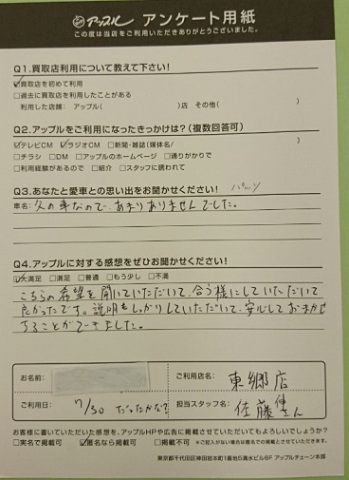 アップル アンケート用紙
この度は当店をご利用いただきありがとうございました。
Q1.買取店利用について教えて下さい!
☑買取店を初めて利用
□過去に買取店を利用したことがある
利用した店舗: アップル( )店 その他( )
Q2.アップルをご利用になったきっかけは?(複数回答可)
☑テレビCM ☑ラジオCM □新聞・雑誌(媒体名/ )
□チラシ □DM □アップルのホームページ □通りがかりで
□利用経験があるので □紹介 □スタッフに誘われて
Q3.あなたと愛車との思い出をお聞かせください!
車名:
父の車なので、あまりありませんでした。
Q4.アップルに対する感想をぜひお聞かせください!
☑大満足 □満足 □普通 □もう少し □不満
こちらの希望を聞いていただいて、合う様にしていただいて
良かったです。説明もしっかりしていただいて、安心しておまかせ
することができました。
お名前:
ご利用店名:
東郷店
ご利用日: 7/30 だったかな?
担当スタッフ名: 佐藤健さん
お客様に書いていただいた感想を、アップルHPや広告に掲載させていただいてもよろしいでしょうか?
□実名で掲載可 ☑匿名なら掲載可 □掲載不可 ※ご記入がない場合は匿名での掲載とさせていただきます。
東京都千代田区神田佐久間町1番地5清水ビル6F アップルチェーン本部